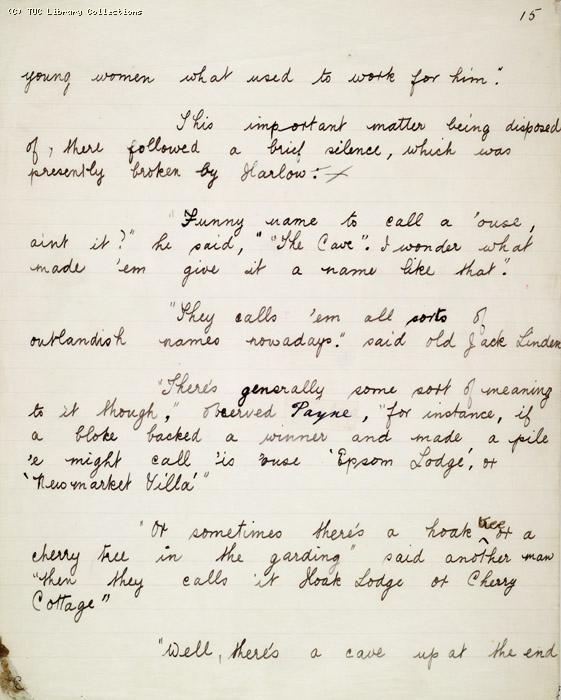 (c) TUC Library Collections
15
young women what used to work for him".
This important matter being disposed
of, there followed a brief silence, which was
presently broken by Harlow:
"Funny name to call a 'ouse,
aint it?" he said, "The Cave". I wonder what
made 'em give it a name like that".
"They calls 'em all sorts of
outlandish names nowadays." said old Jack Linden
"There's generally some sort of meaning
to it though," observed Payne, "for instance, if
a bloke backed a winner and made a pile
'e might call 'is 'ouse 'Epsom Lodge', or
'Newmarket Villa'"
"Or sometimes there's a hoak tree or a
cherry tree in the garding" said another man
"then they calls it Hoak Lodge or Cherry
Cottage"
"Well, there's a cave up at the end